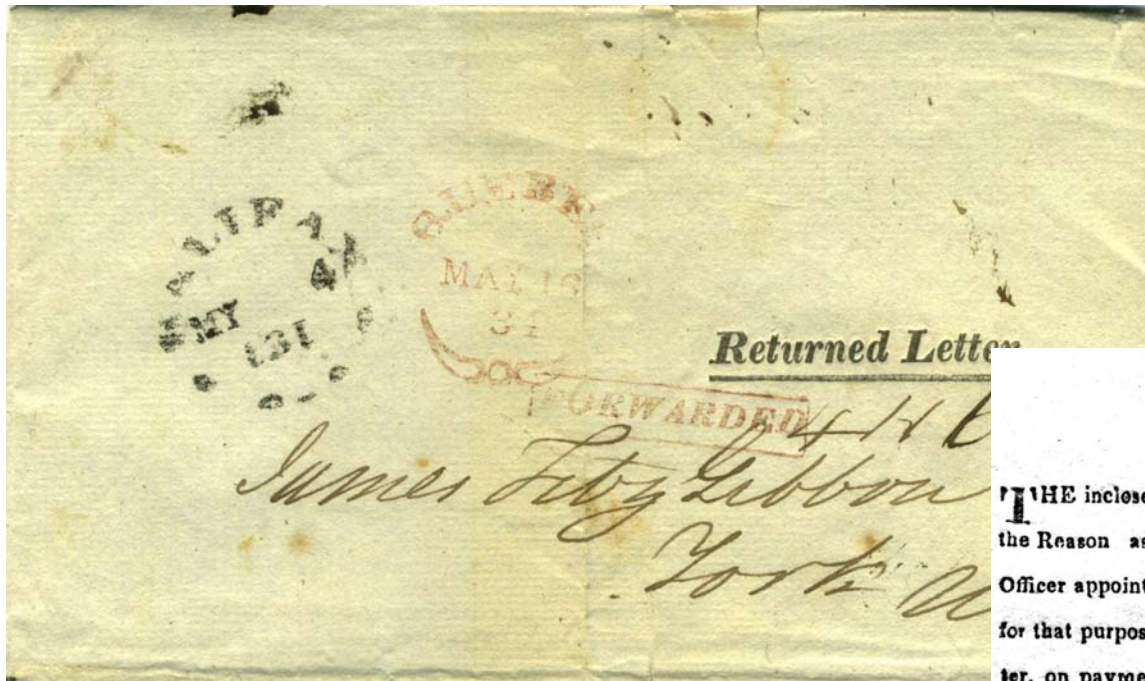 HALIFAX
MY 4
1831
QUEBE
MAY 16
31
Returned Letter
FORWARDED
James FitzGibbon
York
THE inclose
the Reason as
Officer appoint
for that purpos
ter, on payme